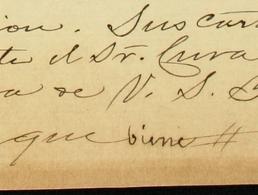 ion. Sus car
te el Sr. Cura
a de V. S.
que viene